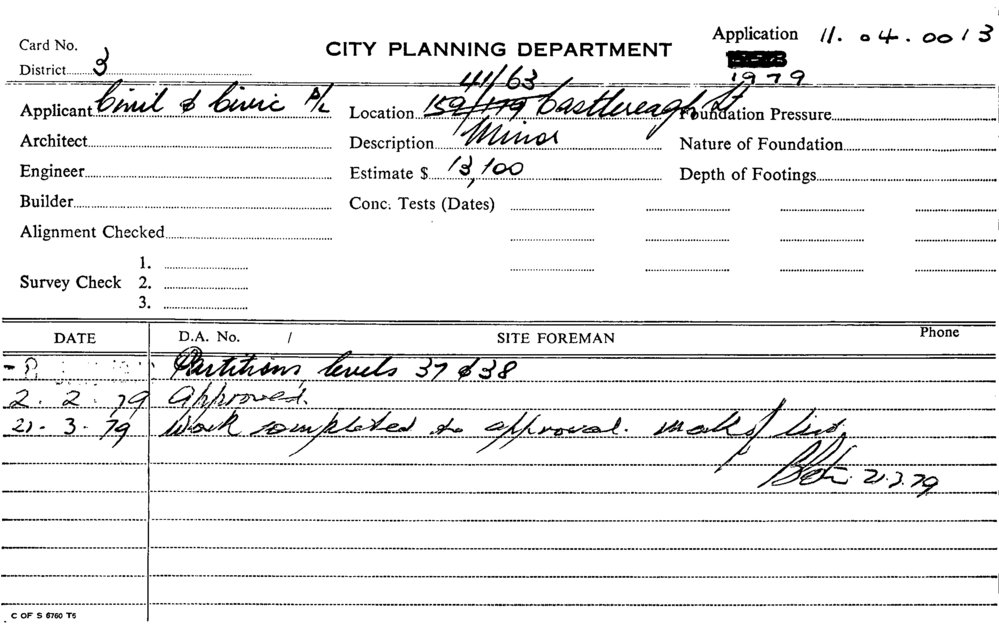 Card No.
District 3
CITY PLANNING DEPARTMENT
Application 11.04.0013
1979
Applicant Civil & Civic P/L
Architect
Engineer
Builder
Alignment Checked
Survey Check 1.
2.
3.
41/63
Location 159/179 Castlereagh St
Description Minor
Estimate $ 13,100
Conc. Tests (Dates)
Foundation Pressure
Nature of Foundation
Depth of Footings
DATE D.A. No. / SITE FOREMAN Phone
Partitions, levels 37 & 38
2.2.79 Approved.
21.3.79 Work completed to approval. mark of list
21.3.79
C OF S 6760 T5